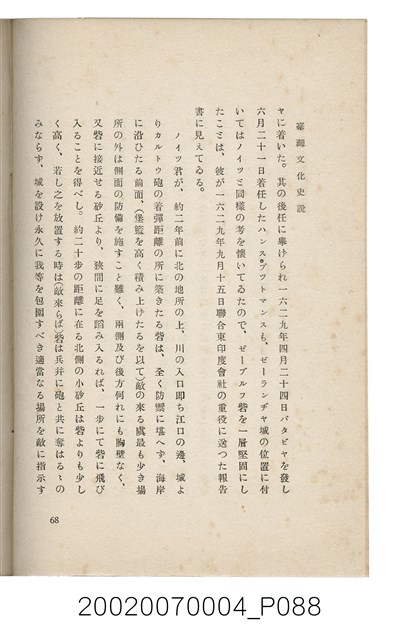 臺灣文化史說
ヤに着いた。其の後任に擧けられ一六二九年四月二十四日バタビヤを發し
六月二十一日着任したハンス・プットマンスも、ゼーランヂヤ城の位置に付
いてはノイツと同樣の考を懷いてゐたので、ゼーブルフ砦を一層堅固にし
たことは、彼が一六二九年九月十五日聯合東印度會社の重役に送つた報告
書に見えてゐる。
ノイツ君が、約二年前に北の地所の上、川の入口即ち江口の邊、城よ
りカルトウ砲の着彈距離の所に築きたる砦は、全く防禦に堪へず、海岸
に沿ひたる前面、(堡籃を高く積み上けたるを以て)敵の來る虞最も少き場
所の外は側面の防備を施すこと難く、兩側及び後方何れにも胸壁なく、
又砦に接近せる砂丘より、狹間に足を踏み入るれば、一步にて砦に飛び
入ることを得べし。約二十步の距離に在る北側の小砂丘は砦よりも少し
く高く、若し之を放置する時は(敵來らば)砦は兵并に砲と共に奪はるゝの
みならず、城を設け永久に我等を包圍すべき適當なる場所を敵に指示す
68
20020070004_P088